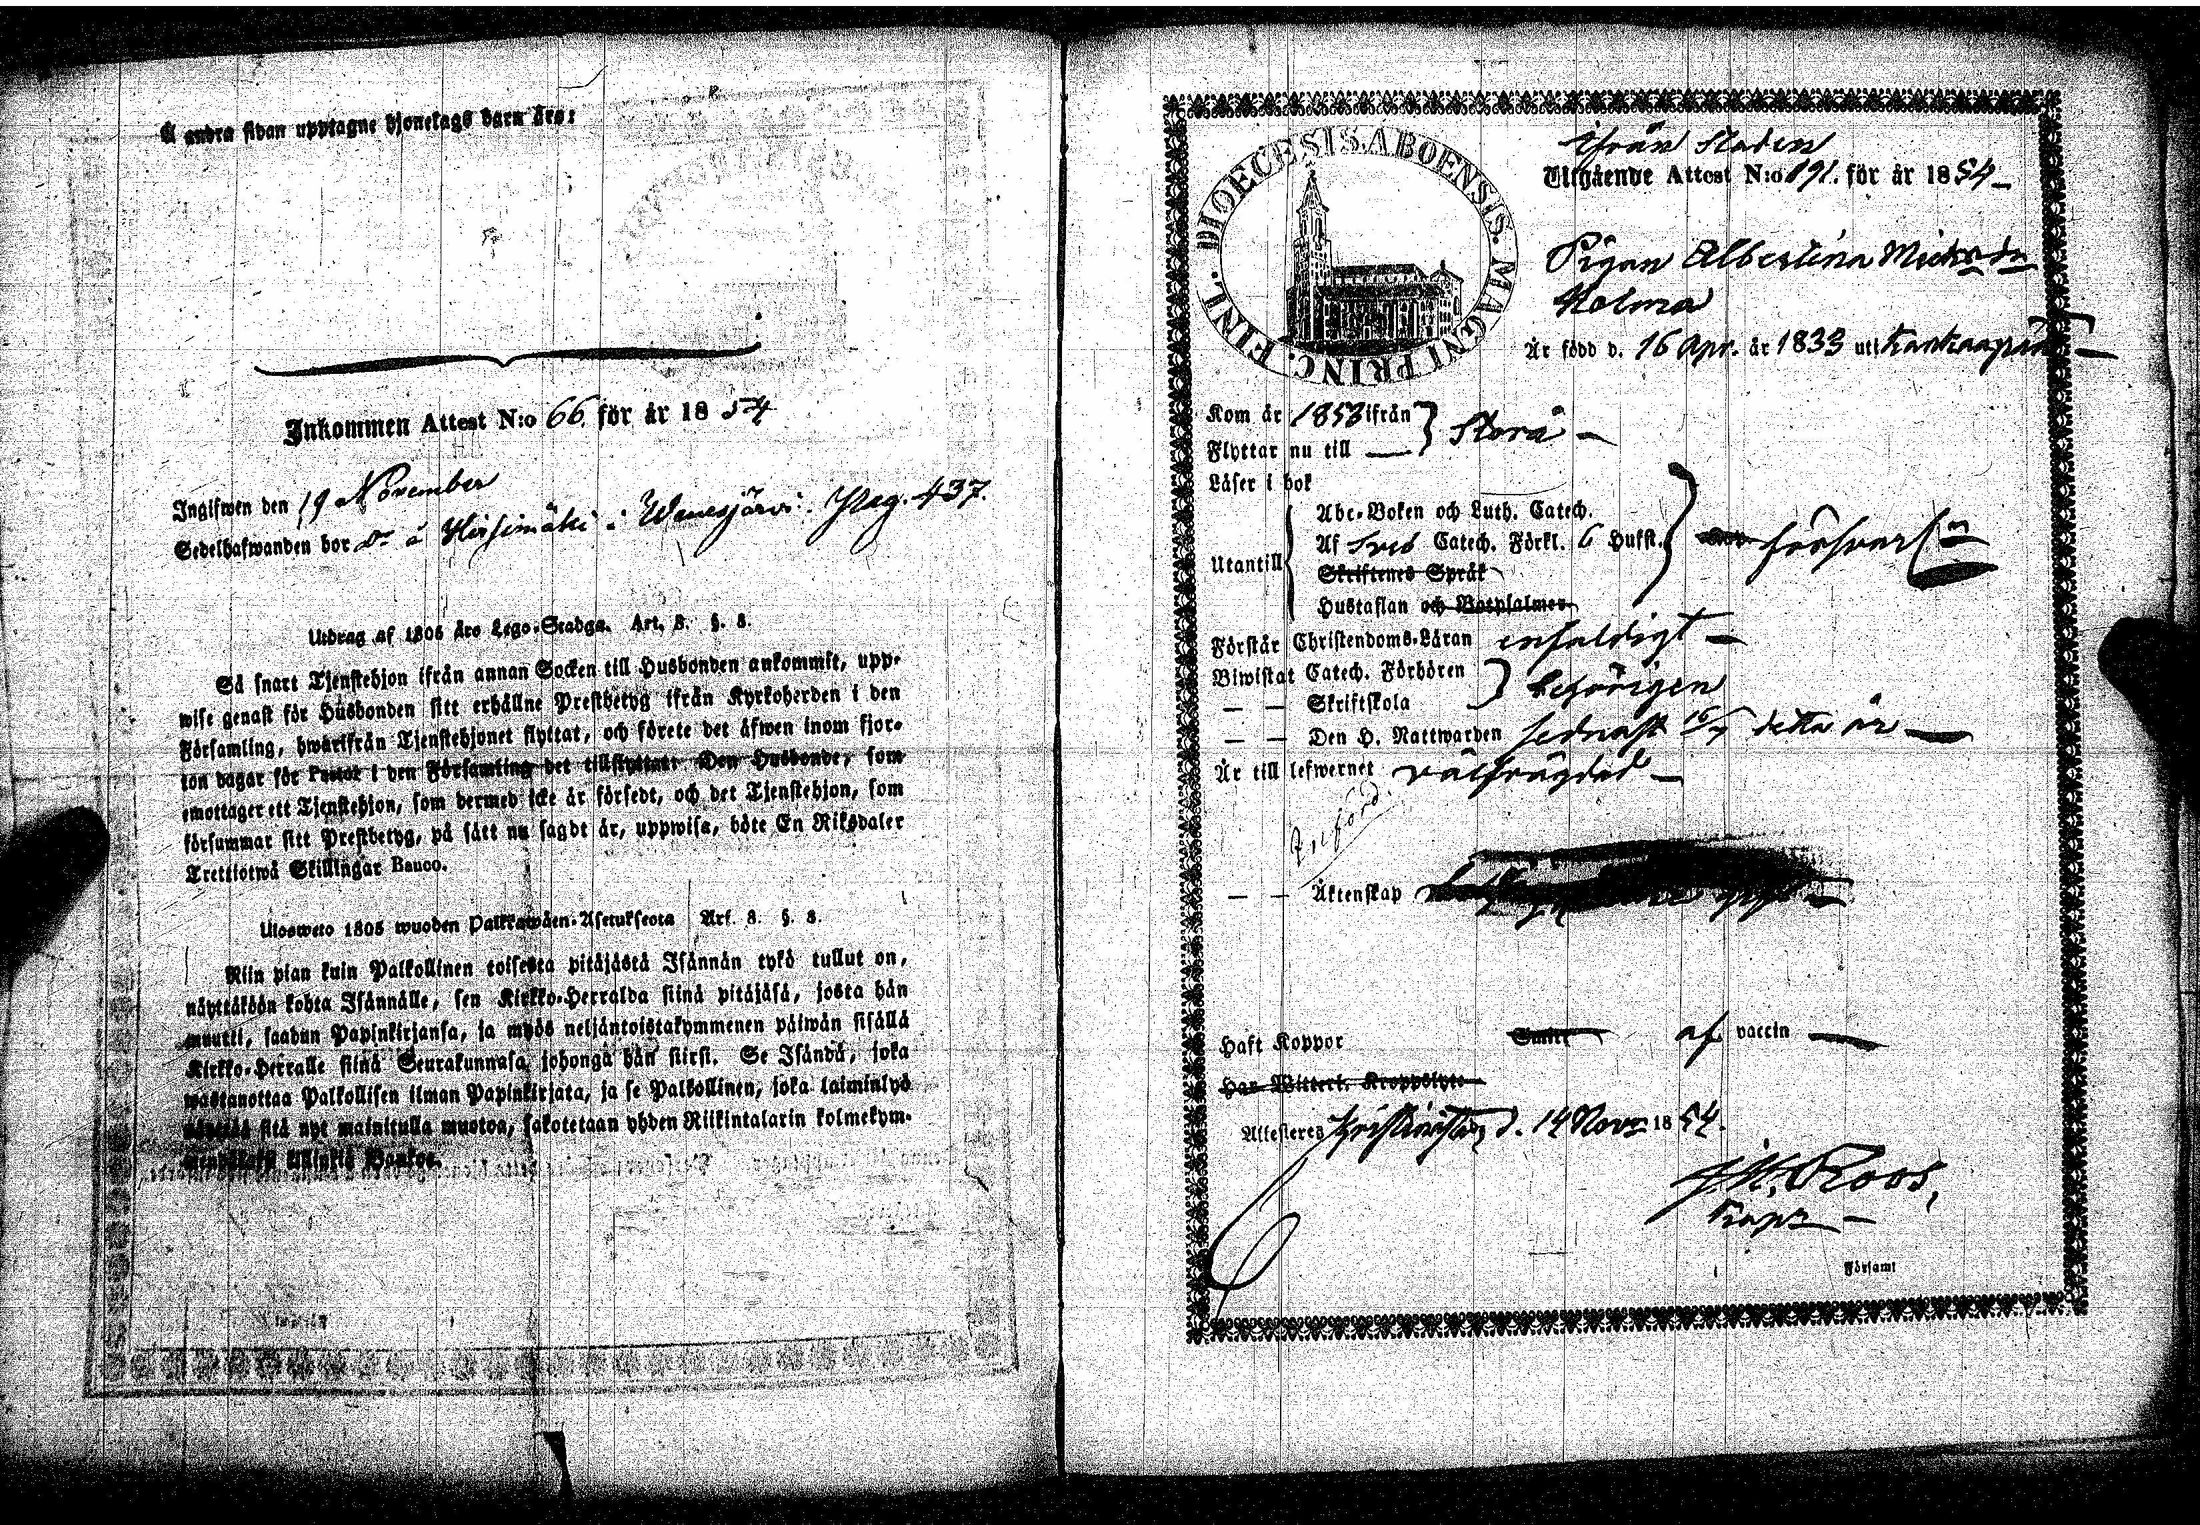 Å andra sidan upptagne hjonelags barn äro:
Inkommen Attest N:o 66. för år 1854
Ingifwen den 19 November
Sedelhafwanden bor Dr å Hirsimäki i Wenesjärvi. Pag. 437.
Utdrag af 1805 års Lego-Stadga. Art. 3. §. 8.
Så snart Tjenstehjon ifrån annan Socken till Husbonden ankommit, upp-
wise genast för Husbonden sitt erhållne Prestbetyg ifrån Kyrkoherden i den
Församling, hwarifrån Tjenstehjonet flyttat, och förete det äfwen inom fjor-
ton dagar för Pastor i den Församling det tillflyttat. Den Husbonde, som
emottager ett Tjenstehjon, som dermed icke är försedt, och det Tjenstehjon, som
försummar sitt Prestbetyg, på sätt nu sagdt är, uppwisa, böte En Riksdaler
Trettiotwå Skillingar Banco.
Ulosweto 1805 wuoden Palkkawäen-Asetuksesta Art. 3. §. 8.
Niin pian kuin Palkollinen toisesta pitäjästä Isännän tykö tullut on,
näyttäköön kohta Isännälle, sen Kirkko-Herralda siinä pitäjäsä, josta hän
muutti, saadun Papinkirjansa, ja myös neljäntoistakymmenen päiwän sisällä
Kirkko-Herralle siinä Seurakunnasa, johonga hän siirsi. Se Isändä, joka
wastanottaa Palkollisen ilman Papinkirjata, ja se Palkollinen, joka laiminlyö
näyttää sitä nyt mainitulla muotoa, sakotetaan yhden Riikintalarin kolmekym-
mendäkaksi killinkiä Bankos.
DIOECESIS. ABOENSIS. MAGNI PRINC. FINL.
ifrån staden
Utgående Attest N:o 191. för år 1854
Pigan Albertina
Holma
Är född d. 16 Apr. år 1833 uti
Kom år 1853 ifrån
Flyttar nu till
Storå
Läser i bok
Utantill
Abc-Boken och Luth. Catech.
Af Sveb Catech. Förkl. 6 Hufst.
Skriftenes Språk
Hustaflan och Botpsalmer
försvarl.
Förstår Christendoms-Läran enfaldigt
Biwistat Catech. Förhören
— — Skriftskola
behörigen
— — Den H. Nattwarden sednast 16/7 detta år
Är till lefwernet välfrägdad
— — Äktenskap
Haft Koppor Smitt af vaccin
Har Witterl. Kroppslyte
Attesteras Kristinestad d. 14 Nov. 1854.
Roos,
Kapn
Församl